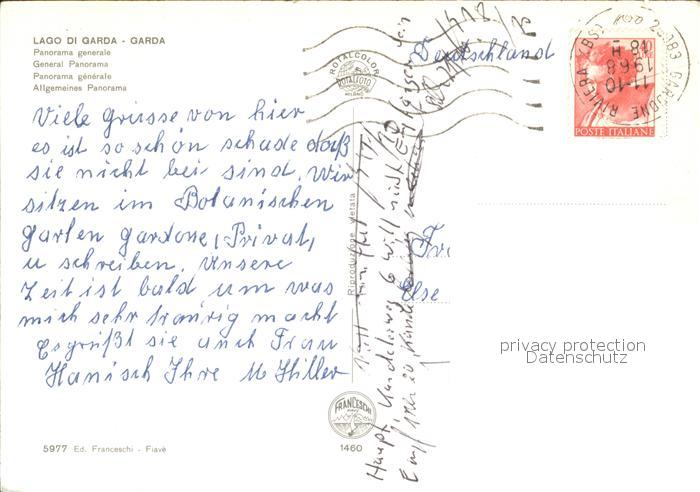 LAGO DI GARDA - GARDA
Panorama generale
General Panorama
Panorama générale
Allgemeines Panorama
Viele grüsse von hier
es ist so schön schade daß
sie nicht bei sind. Wir
sitzen im Botanischen
Garten Gardone, Privat,
u schreiben. Unsere
Zeit ist bald um was
mich sehr traurig macht
Es grüßt sie auch Frau
Hanisch Ihre M Hiller
5977 Ed. Franceschi - Fiavè
FRANCESCHI
1460
Riproduzione vietata
ROTALCOLOR
ROTALFOTO
MILANO
Deutschland
POSTE ITALIANE
25083 GARDONE RIVIERA (BS)
11-10
1968
18-H
Else
Haupt
will nicht
privacy protection
Datenschutz